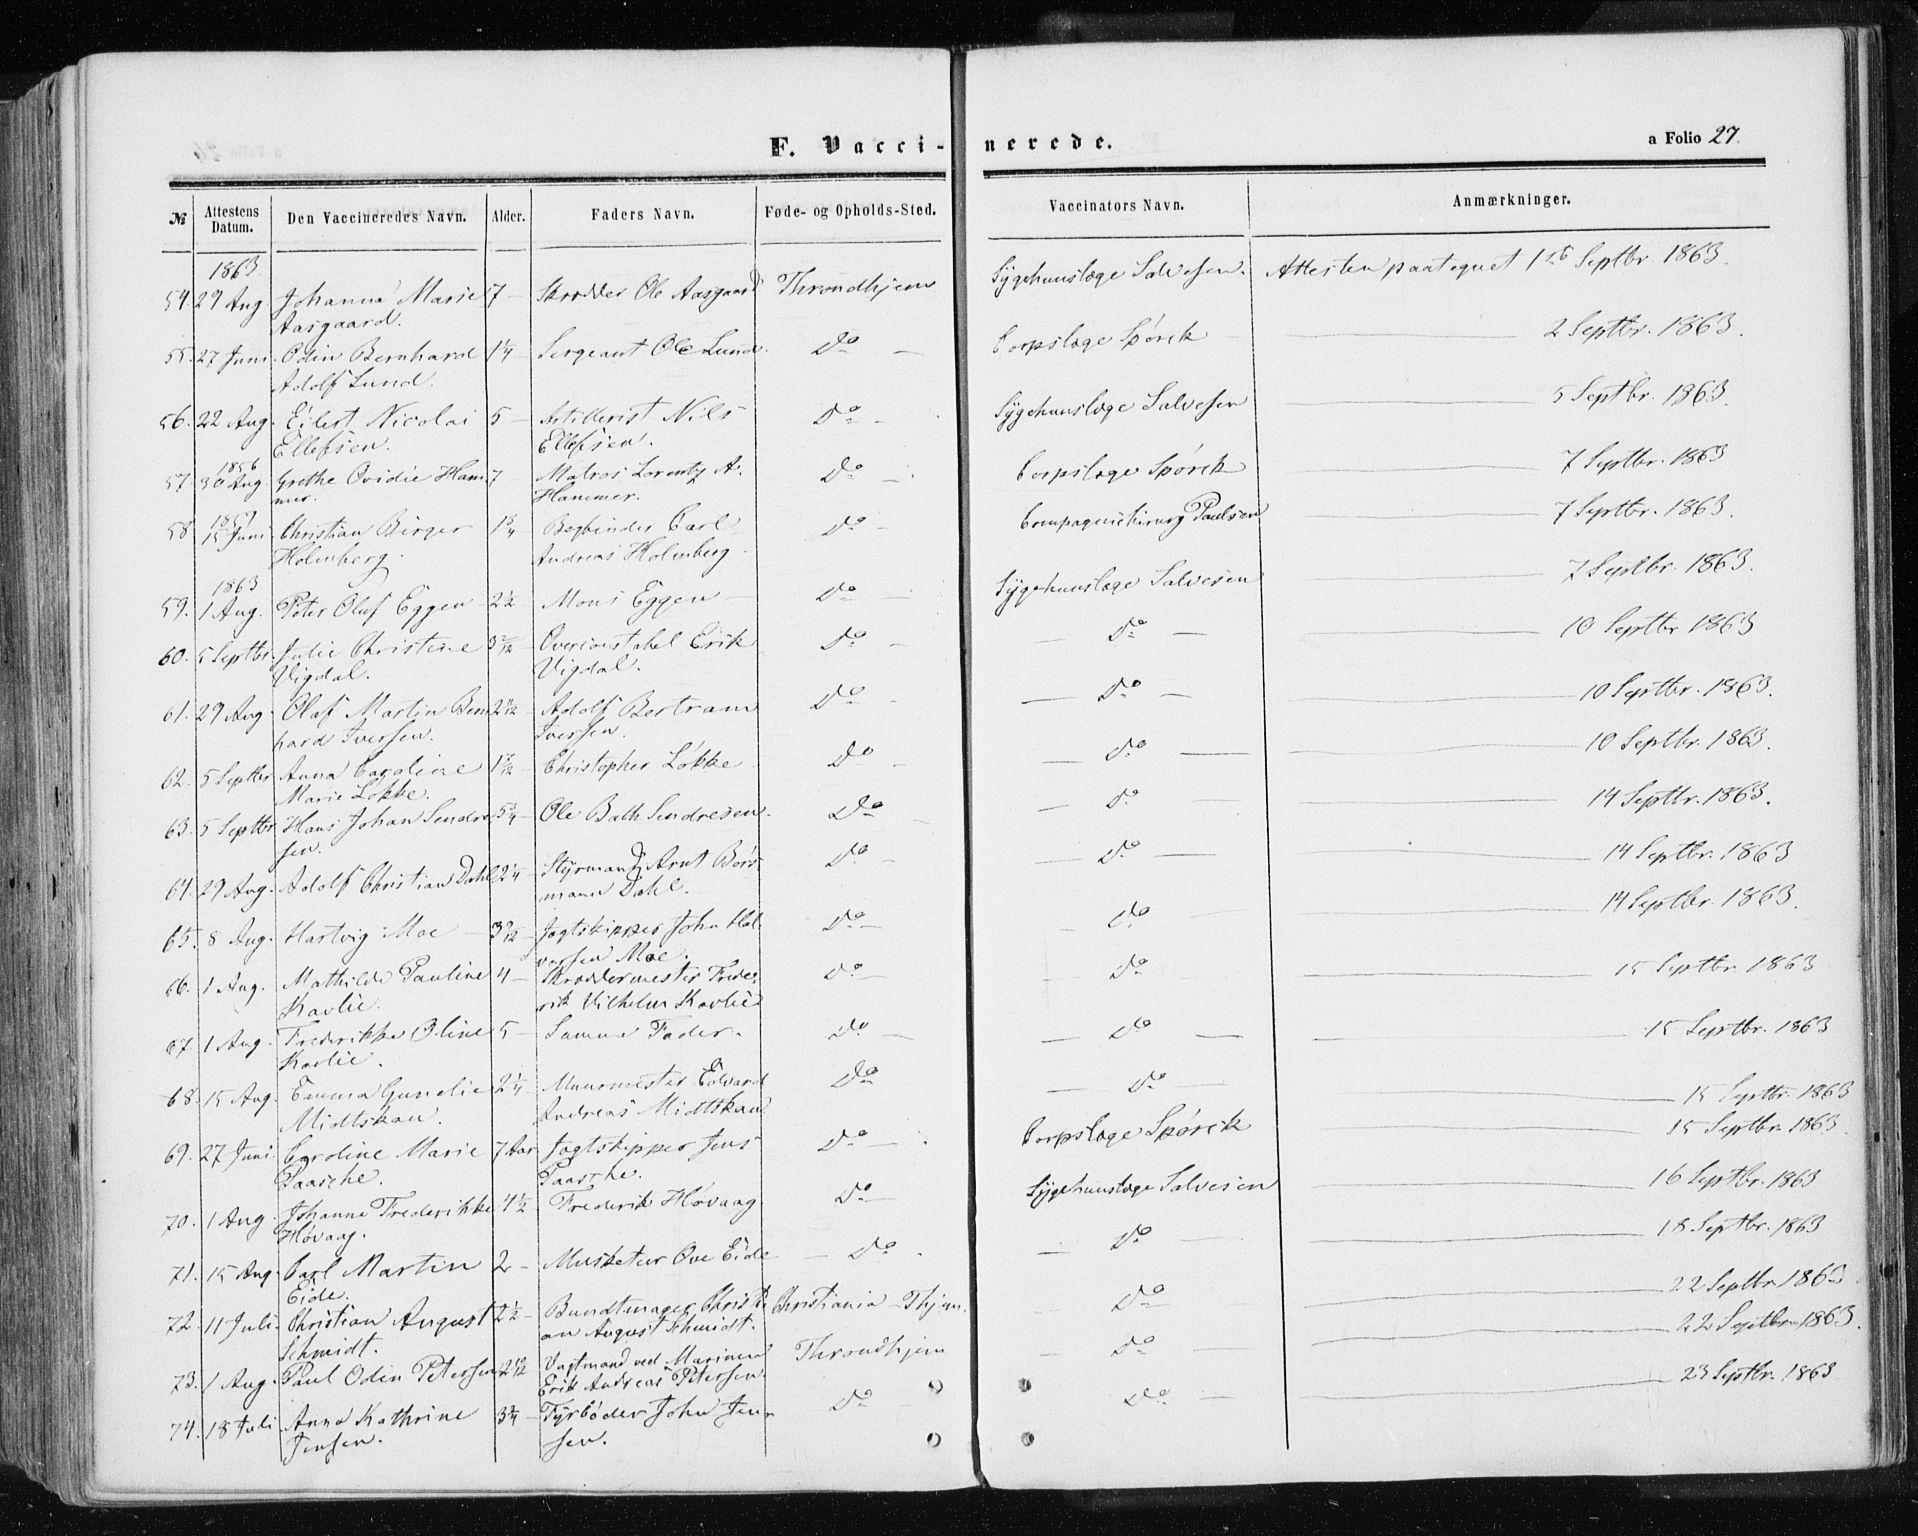 F. Vaccinerede.
a Folio 27.
№ | Attestens Datum. | Den Vaccineredes Navn. | Alder. | Faders Navn. | Føde- og Opholds-Sted. | Vaccinators Navn. | Anmærkninger.
1863
54. 29 Aug. Johanna Marie 7 – Skrædder Ole Aasgaard Throndhjem Sygehuuslæge Salvesen. Attesten paategnet 1ste Septbr. 1863.
Aasgaard.
55. 27 Juni. Odin Bernhard 1¼ – Sergeant Ole Lund. Do – Corpslæge Spørck 2 Septbr. 1863.
Adolf Lund.
56. 22 Aug. Eilert Nicolai 5 – Artillerist Nils Do – Sygehuuslæge Salvesen 5 Septbr. 1863.
Ellefsen. Ellefsen.
1856
57. 30 Aug. Grethe Ovidie Ham- 7 – Matros Lorentz A. Do – Corpslæge Spørck 7 Septbr. 1863
mer. Hammer.
58. 15 Juni Christian Birger Bogbinder Carl Do – Compagniechirurg Paulsen 7 Septbr. 1863.
Holmberg. Andreas Holmberg.
1863
59. 1 Aug. Peter Oluf Eggen 2½ – Mons Eggen – Do – Sygehuuslæge Salvesen 7 Septbr. 1863.
60. 5 Septbr. Julie Christine Overconstabel Erik Do – – Do – 10 Septbr 1863
Vigdal. Vigdal.
61. 29 Aug. Olaf Martin Bern- Adolf Bertram Do – – Do – 10 Septbr. 1863.
hard Iversen. Iversen.
62. 5 Septbr Anna Caroline Christopher Løkke Do – – Do – 10 Septbr. 1863.
Marie Løkke.
63. 5 Septbr. Hans Johan Sendre- 5¾ – Ole Bath Sendresen. Do – – Do – 14 Septbr. 1863.
sen.
64. 29 Aug. Adolf Christian Dahl 2¼ – Styrmand Arnt Børs- Do – – Do – 14 Septbr. 1863
mann Dahl.
65. 8 Aug. Hartvig Moe – Jagtskipper John Hal- Do – – Do 14 Septbr. 1863.
vorsen Moe.
66. 1 Aug. Mathilde Pauline 4 – Skræddermester Frede- Do – – Do 15 Septbr. 1863
Kavlie. rik Vilhelm Kavlie
67. 1 Aug. Frederikke Oline 5 – Samme Fader. Do – – Do – 15 Septbr. 1863
Kavlie.
68. 15 Aug. Emma Gunelie 2¼ – Muurmester Edvard Do – Do – 15 Septbr. 1863
Midtskau. Andreas Midtskau
69. 27 Juni. Caroline Marie 7 Aar Jagtskipper Jens Do – Corpslæge Spørck 15 Septbr. 1863.
Paasche. Paasche.
70. 1 Aug. Johanne Frederikke 4½ – Frederik Høvaag Do – Sygehuuslæge Salvesen 16 Septbr. 1863
Høvaag.
71. 15 Aug. Carl Martin 2 – Musketeer Ove Eide – Do. – Do – 18 Septbr. 1863
Eide.
72. 11 Juli. Christian August 2½ – Bundtmager Christi- Christiania – Thjem. Do 22 Septbr 1863.
Schmidt. an August Schmidt.
73. 1 Aug. Paul Odin Petersen Vagtmand ved Marinen Throndhjem – Do – 22 Septbr. 1863.
Erik Andreas Petersen.
74. 18 Juli. Anna Kathrine 3¾ – Fyrbøder John Jen- Do – Do – 23 Septbr. 1863
Jensen. sen.